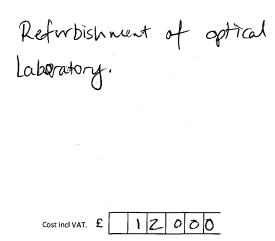 Refurbishment of optical
Laboratory.
Cost incl VAT. £ 12000